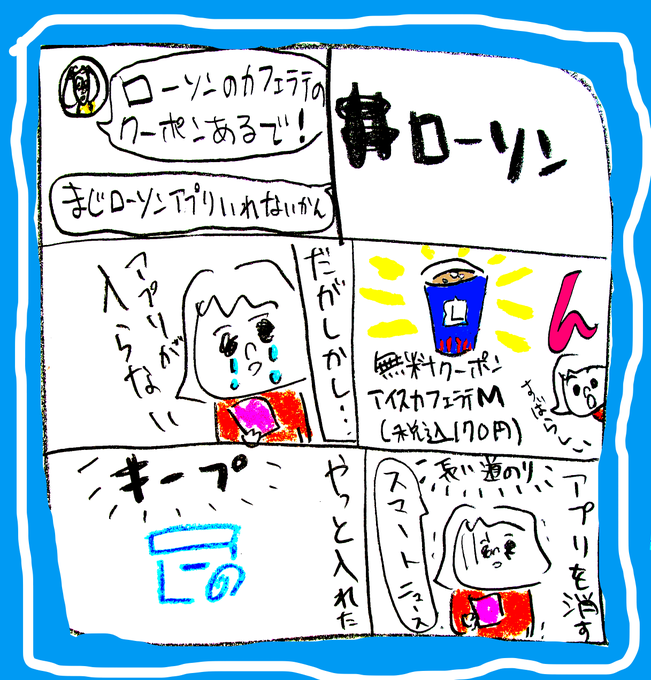 ローソン
ローソンのカフェラテの
クーポンあるで!
まじローソンアプリいれないかん
ん
L
無料クーポン
アイスカフェラテM
(税込170円)
すばらしい
だがしかし…
アプリが
入らない
アプリを消す
長い道のり
スマートニュース
やっと入れた
キープ